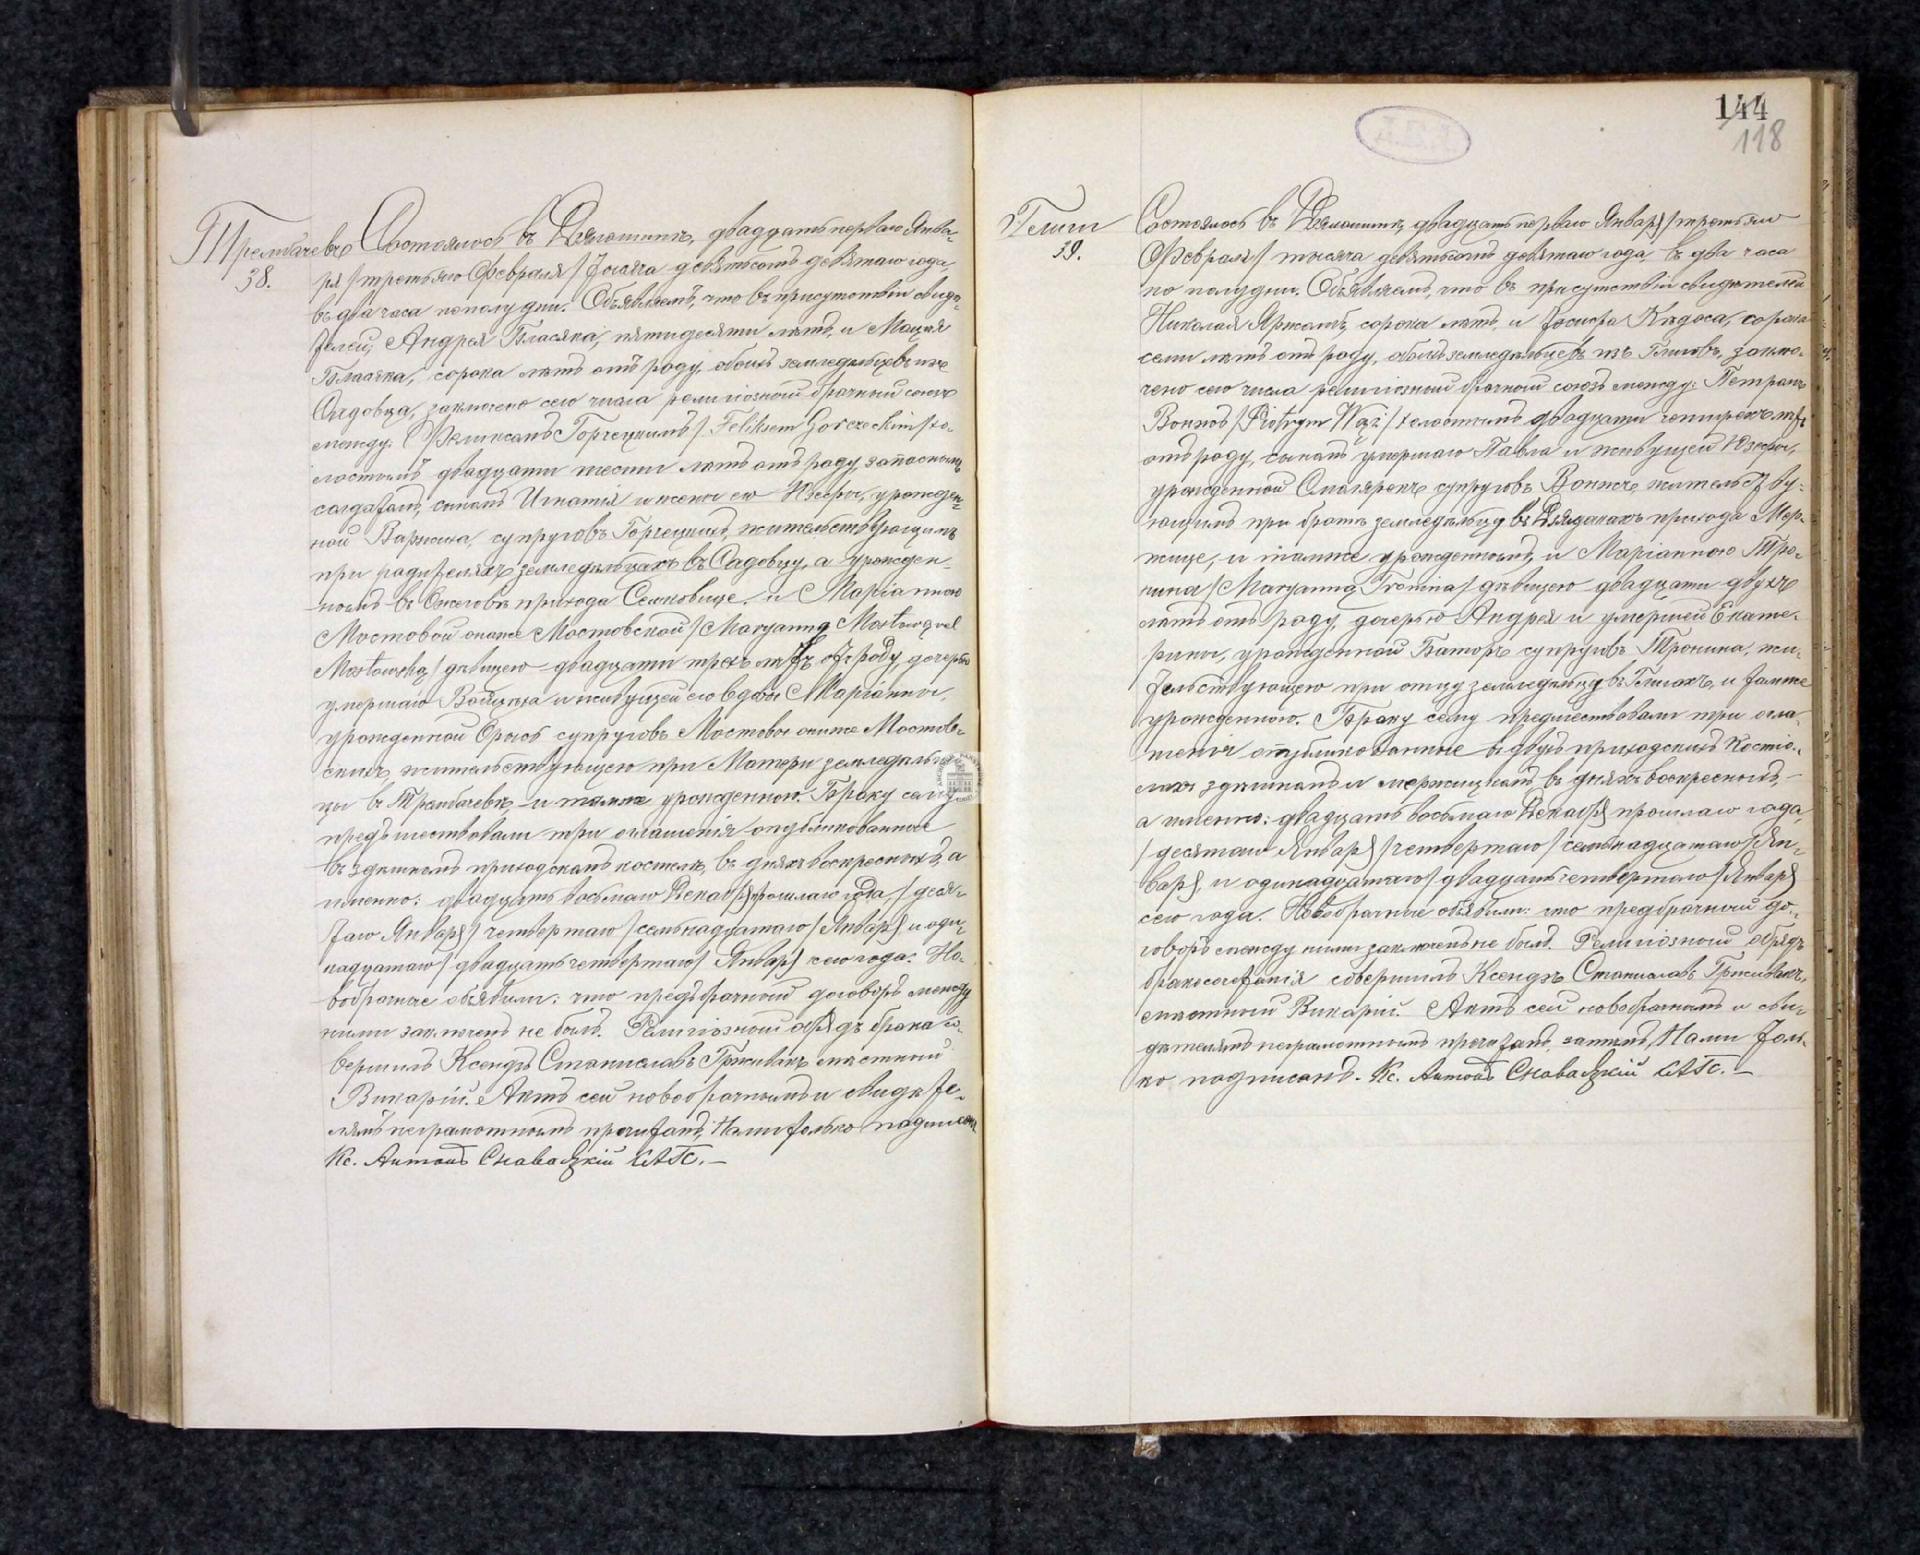 Трембачевъ
38.
Состоялось въ Дзялошинѣ, двадцать перваго Янва-
ря /третьяго Февраля/ тысяча девятьсотъ девятаго года,
въ два часа пополудни. Объявляемъ, что въ присутствіи свидѣ-
телей, Андрея Власяка, пятидесяти лѣтъ, и Мацея
Власяка, сорока лѣтъ отъ роду, обоихъ земледѣльцевъ изъ
Садовца, заключено сего числа религіозный брачный союзъ
между: Феликсомъ Горчецкимъ /Feliksem Gorczeckim/ хо-
лостымъ двадцати шести лѣтъ отъ роду, запаснымъ
солдатомъ, сыномъ Игнатія и жены его Юзефы, урожден-
ной супруговъ Горчецкихъ, жительствующимъ
при родителяхъ земледѣльцахъ въ Садовцу, а урожден-
нымъ въ прихода Семковице, и Маріанною
Мостовой онаже Мостовской /Maryanną Mostową vel
Mostowską/ дѣвицею двадцати трехъ лѣтъ отъ роду, дочерью
умершаго Войцеха и живущей его вдовы Маріанны,
урожденной супруговъ Мостовы ониже Мостов-
скихъ, жительствующею при Матери земледѣли-
цы въ Трембачевѣ и тамже урожденною. Браку сему
предшествовали три оглашенія опубликованные
въ здѣшнемъ приходскомъ костелѣ, въ дняхъ воскресныхъ, а
именно: двадцать восьмаго Декабря прошлаго года, /деся-
таго Января/ четвертаго /семнадцатаго/ Января и оди-
надцатаго /двадцать четвертаго/ Января сего года. Но-
вобрачные объявили: что предбрачный договоръ между
ними заключенъ не былъ. Религіозный обрядъ брака со-
вершилъ Ксендзъ Станиславъ Грживакъ мѣстный
Викарій. Актъ сей новобрачнымъ и свидѣте-
лямъ неграмотнымъ прочитанъ, Нами только подписанъ
Кс. Антонъ Снавадзкій САГС.
144
118
Гелши
39.
Состоялось въ Дзялошинѣ, двадцать перваго Января /третьяго
Февраля/ тысяча девятьсотъ девятаго года, въ два часа
по полудни. Объявляемъ, что въ присутствіи свидѣтелей
Николая сорока лѣтъ, и Іосифа Кядоса, сорока
семи лѣтъ отъ роду, обоихъ земледѣльцевъ изъ заклю-
чено сего числа религіозный брачный союзъ между: Петромъ
Вонжъ /Piotrem Wąż/ холостымъ двадцати четырехъ лѣтъ
отъ роду, сыномъ умершаго Павла и живущей Юзефы,
урожденной супруговъ Вонжъ, жительству-
ющимъ при братѣ земледѣльцу въ прихода Мер-
жице, и тамже урожденнымъ, и Маріанною Тро-
нина /Maryanną Tronina/ дѣвицею двадцати двухъ
лѣтъ отъ роду, дочерью Андрея и умершей Екате-
рины, урожденной Баторъ супруговъ Тронина, жи-
тельствующею при отцу земледѣльцу въ и тамже
урожденною. Браку сему предшествовали три огла-
шенія опубликованные въ двухъ приходскихъ Костё-
лахъ здѣшнемъ и мержицкомъ въ дняхъ воскресныхъ,
а именно: двадцать восьмаго Декабря прошлаго года,
/десятаго Января/ четвертаго /семьнадцатаго/ Ян-
варя и одинадцатаго /двадцать четвертаго/ Января
сего года. Новобрачные объявили: что предбрачный до-
говоръ между ними заключенъ не былъ. Религіозный обрядъ
бракосочетанія совершилъ Ксендзъ Станиславъ Грживакъ,
мѣстный Викарій. Актъ сей новобрачнымъ и сви-
дѣтелямъ неграмотнымъ прочитанъ, затѣмъ Нами толь-
ко подписанъ. Кс. Антонъ Снавадзкій САГС.